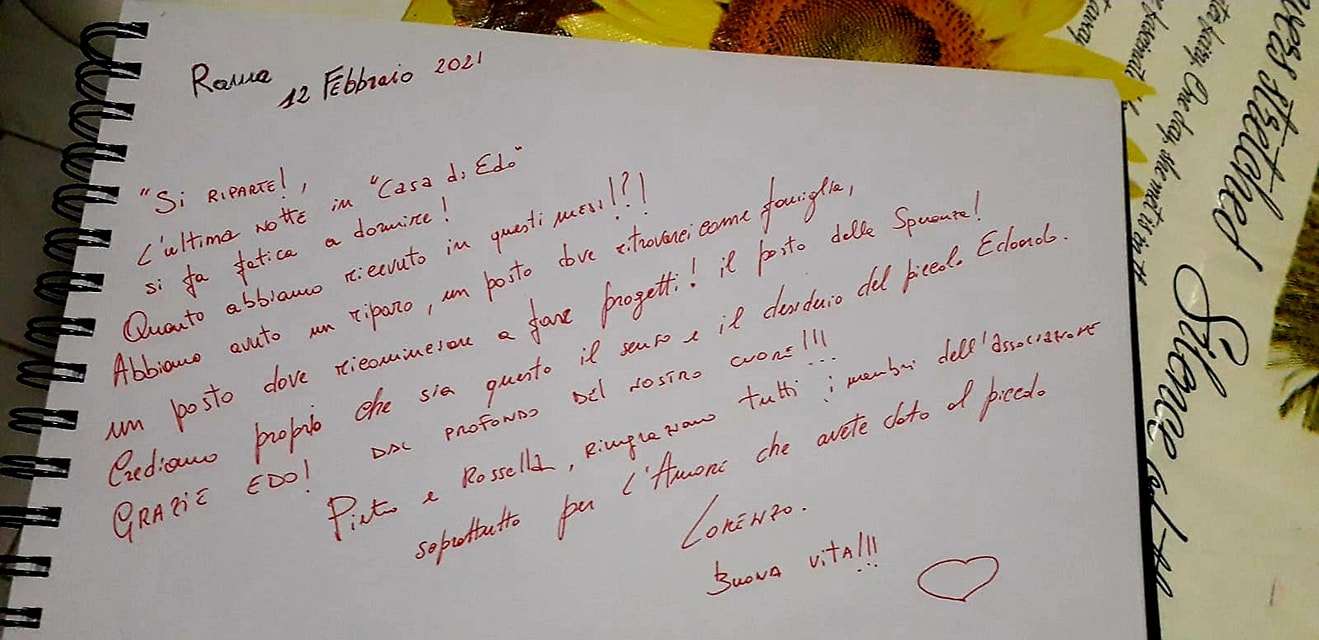 Roma
12 Febbraio 2021
"Si RIPARTE!,
L'ultima NOTTE in "Casa di Edo"
si fa fatica a dormire!
Quanto abbiamo ricevuto in questi mesi!?!
Abbiamo avuto un riparo, un posto dove ritrovarci come famiglia,
un posto dove ricominciare a fare progetti! il posto della Speranza!
Crediamo proprio che sia questo il senso e il desiderio del piccolo Edoardo.
GRAZIE EDO! DAL PROFONDO DEL NOSTRO CUORE!!!
Pietro e Rossella, Ringraziano tutti i membri dell'associazione
soprattutto per l'Amore che avete dato al piccolo
LORENZO.
BUONA VITA!!!
stretched
One day, she met
Silence